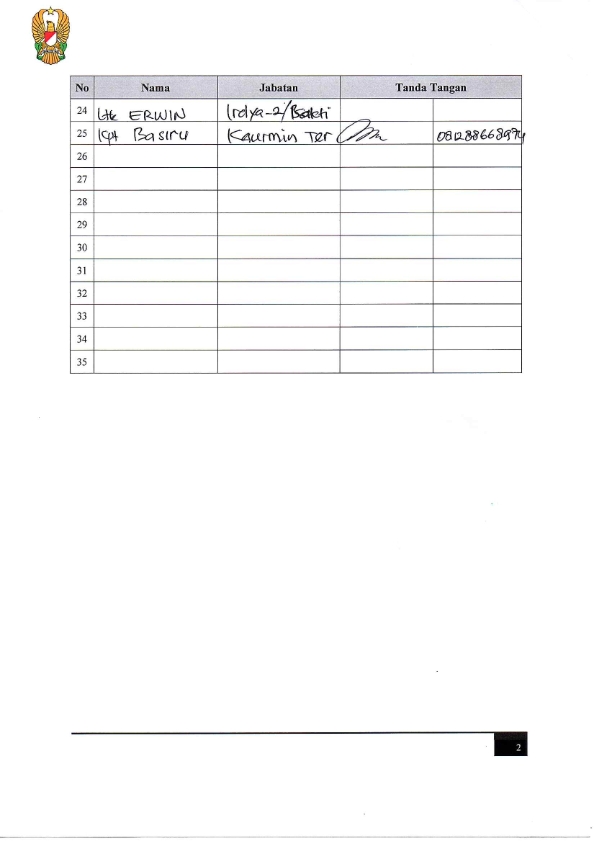 No Nama Jabatan Tanda Tangan
24 Ltk ERWIN Irdya-2/Bakti
25 Kpt Basiru Kaurmin Ter 081288668974
26
27
28
29
30
31
32
33
34
35
2